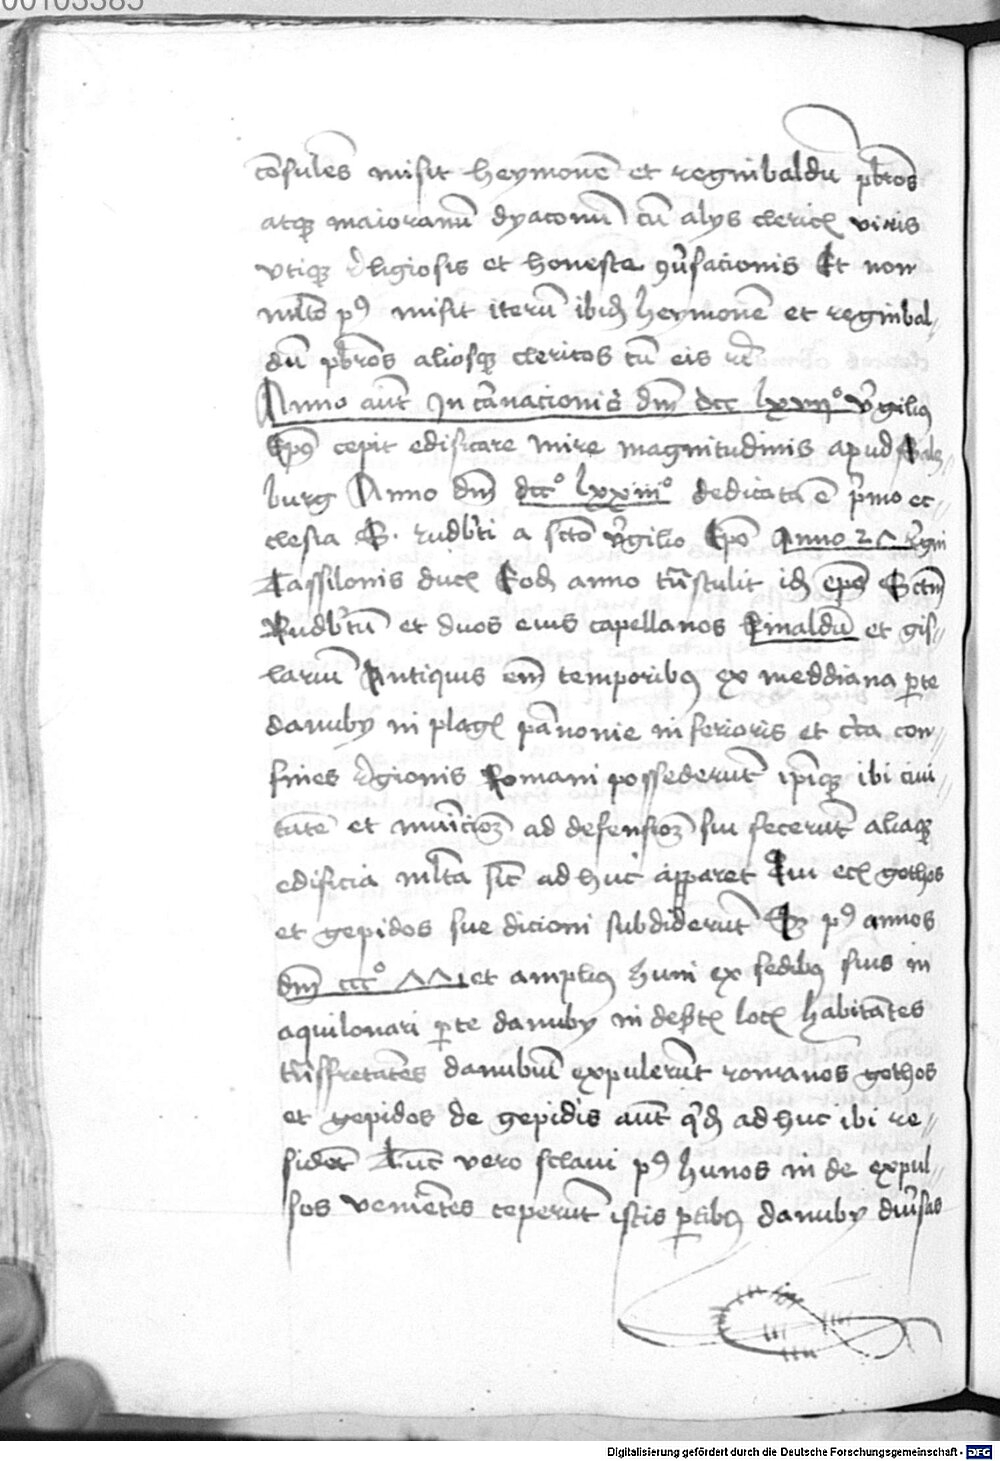 00103385
cōsules misit heymonē et reginbaldū p̄bros
atqȝ maioranū dyaconū cū alys clericꝭ viris
vtiqȝ religiosis et honeste ꝯūsacionis Et non
ml̄to pꝰ misit iterū ibiđ heymonē et reginbal„
dū p̄bros aliosqȝ clericos cū eis rc̄
Anno aūt Incarnacionis dm̄ dcc lxviiº v̄gilius
Ep̄s cepit edificare mire magnitudinis apud Salcz„
burg Anno dm̄ dccº lxxiiiº dedicata ē p̄mo ec„
clesia S. rudb̄ti a scto v̄gilio Ep̄o Anno 2Λ regni
Tassilonis ducꝭ Eodē anno trāstulit iđ ep̄s Sctm̄
Rudb̄tū et duos eius capellanos kinaldū et gis„
larium Antiquis em̄ temporibꝰ ex meddiana ꝑte
danuby in plagꝭ pānonie inferioris et c̄ca con„
fines regionis Romani possederūt ip̄iqȝ ibi ciui„
tatē et municioȝ ad defensioȝ sui fecerūt aliaqȝ
edificia ml̄ta sic̄ adhuc apparet Qui ecꝭ gothos
et gepidos sue dicioni subdiderūt Sȝ pꝰ annos
dm̄ cccº ΛΛ1 et amplius huni ex sedibꝰ suis in
aquilonari ꝑte danuby in des̄tꝭ locꝭ habitātes
trāsfretātes danubiū expulerūt romanos gothos
et gepidos de gepidis aūt q̄đ adhuc ibi re„
sidēt Tūc vero sclaui pꝰ hunos in de expul„
sos veniētes ceperūt istis ꝑtibꝰ danuby diūsas
Digitalisierung gefördert durch die Deutsche Forschungsgemeinschaft - DFG